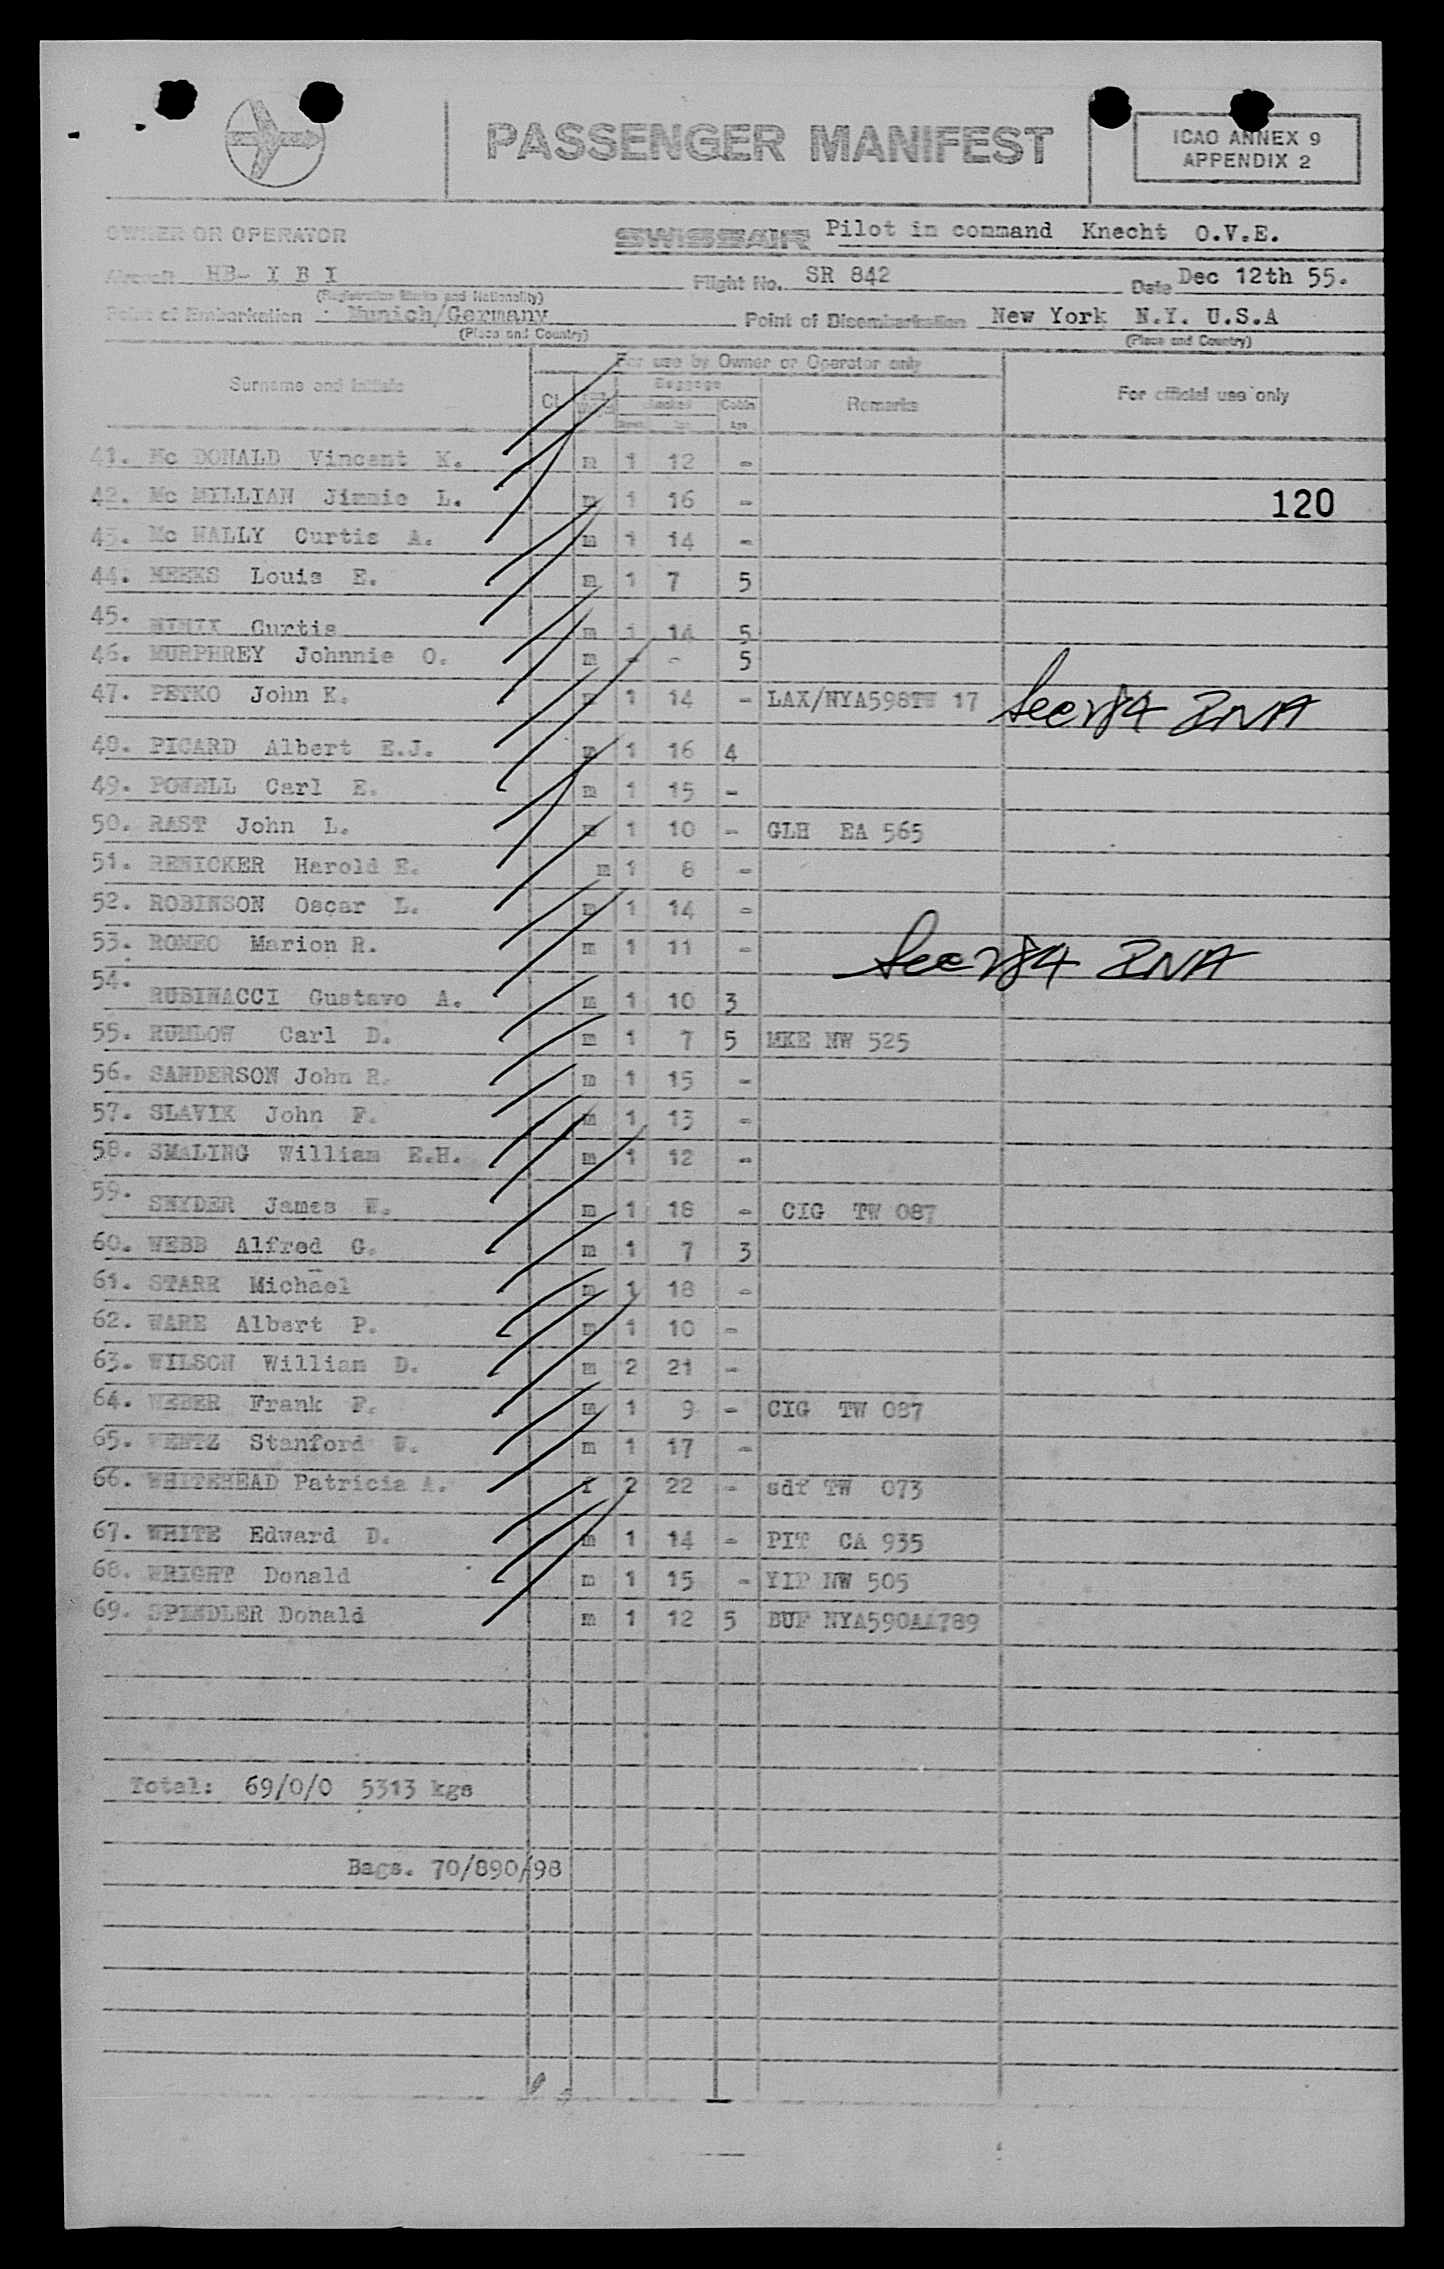 PASSENGER MANIFEST
ICAO ANNEX 9
APPENDIX 2
OWNER OR OPERATOR SWISSAIR Pilot in command Knecht O.V.E.
Aircraft HB- I B I Flight No. SR 842 Date Dec 12th 55.
(Registration Marks and Nationality)
Point of Embarkation : Munich/Germany Point of Disembarkation New York N.Y. U.S.A
(Place and Country) (Place and Country)
For use by Owner or Operator only
Surname and Initials Cl. Baggage Cabin Remarks For official use only
Kgs
41. Mc DONALD Vincent K. m 1 12 -
42. Mc MILLIAN Jimmie L. m 1 16 - 120
43. Mc NALLY Curtis A. m 1 14 -
44. MEEKS Louis E. m 1 7 5
45. MIMIX Curtis m 1 14 5
46. MURPHREY Johnnie O. m - - 5
47. PETKO John K. m 1 14 - LAX/NYA598TW 17 See
48. PICARD Albert E.J. m 1 16 4
49. POWELL Carl E. m 1 15 -
50. RAST John L. m 1 10 - GLH EA 565
51. RENICKER Harold E. m 1 8 -
52. ROBINSON Oscar L. m 1 14 -
53. ROMEO Marion R. m 1 11 - See
54. RUBINACCI Gustavo A. m 1 10 3
55. RUMLOW Carl D. m 1 7 5 MKE NW 525
56. SANDERSON John R. m 1 15 -
57. SLAVIK John F. m 1 13 -
58. SMALING William E.H. m 1 12 -
59. SNYDER James W. m 1 18 - CIG TW 087
60. WEBB Alfred G. m 1 7 3
61. STARR Michael m 1 18 -
62. WARE Albert P. m 1 10 -
63. WILSON William D. m 2 21 -
64. WEBER Frank F. m 1 9 - CIG TW 087
65. WENTZ Stanford W. m 1 17 -
66. WHITEHEAD Patricia A. f 2 22 - sdf TW 073
67. WHITE Edward D. m 1 14 - PIT CA 935
68. WRIGHT Donald m 1 15 - YIP NW 505
69. SPINDLER Donald m 1 12 5 BUF NYA590AA789
Total: 69/0/0 5313 kgs
Bags. 70/890/98